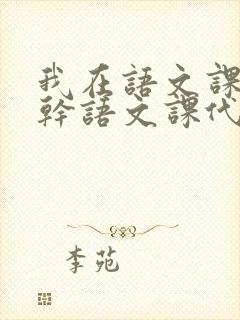 我在語文課
幹語文課代
李苑